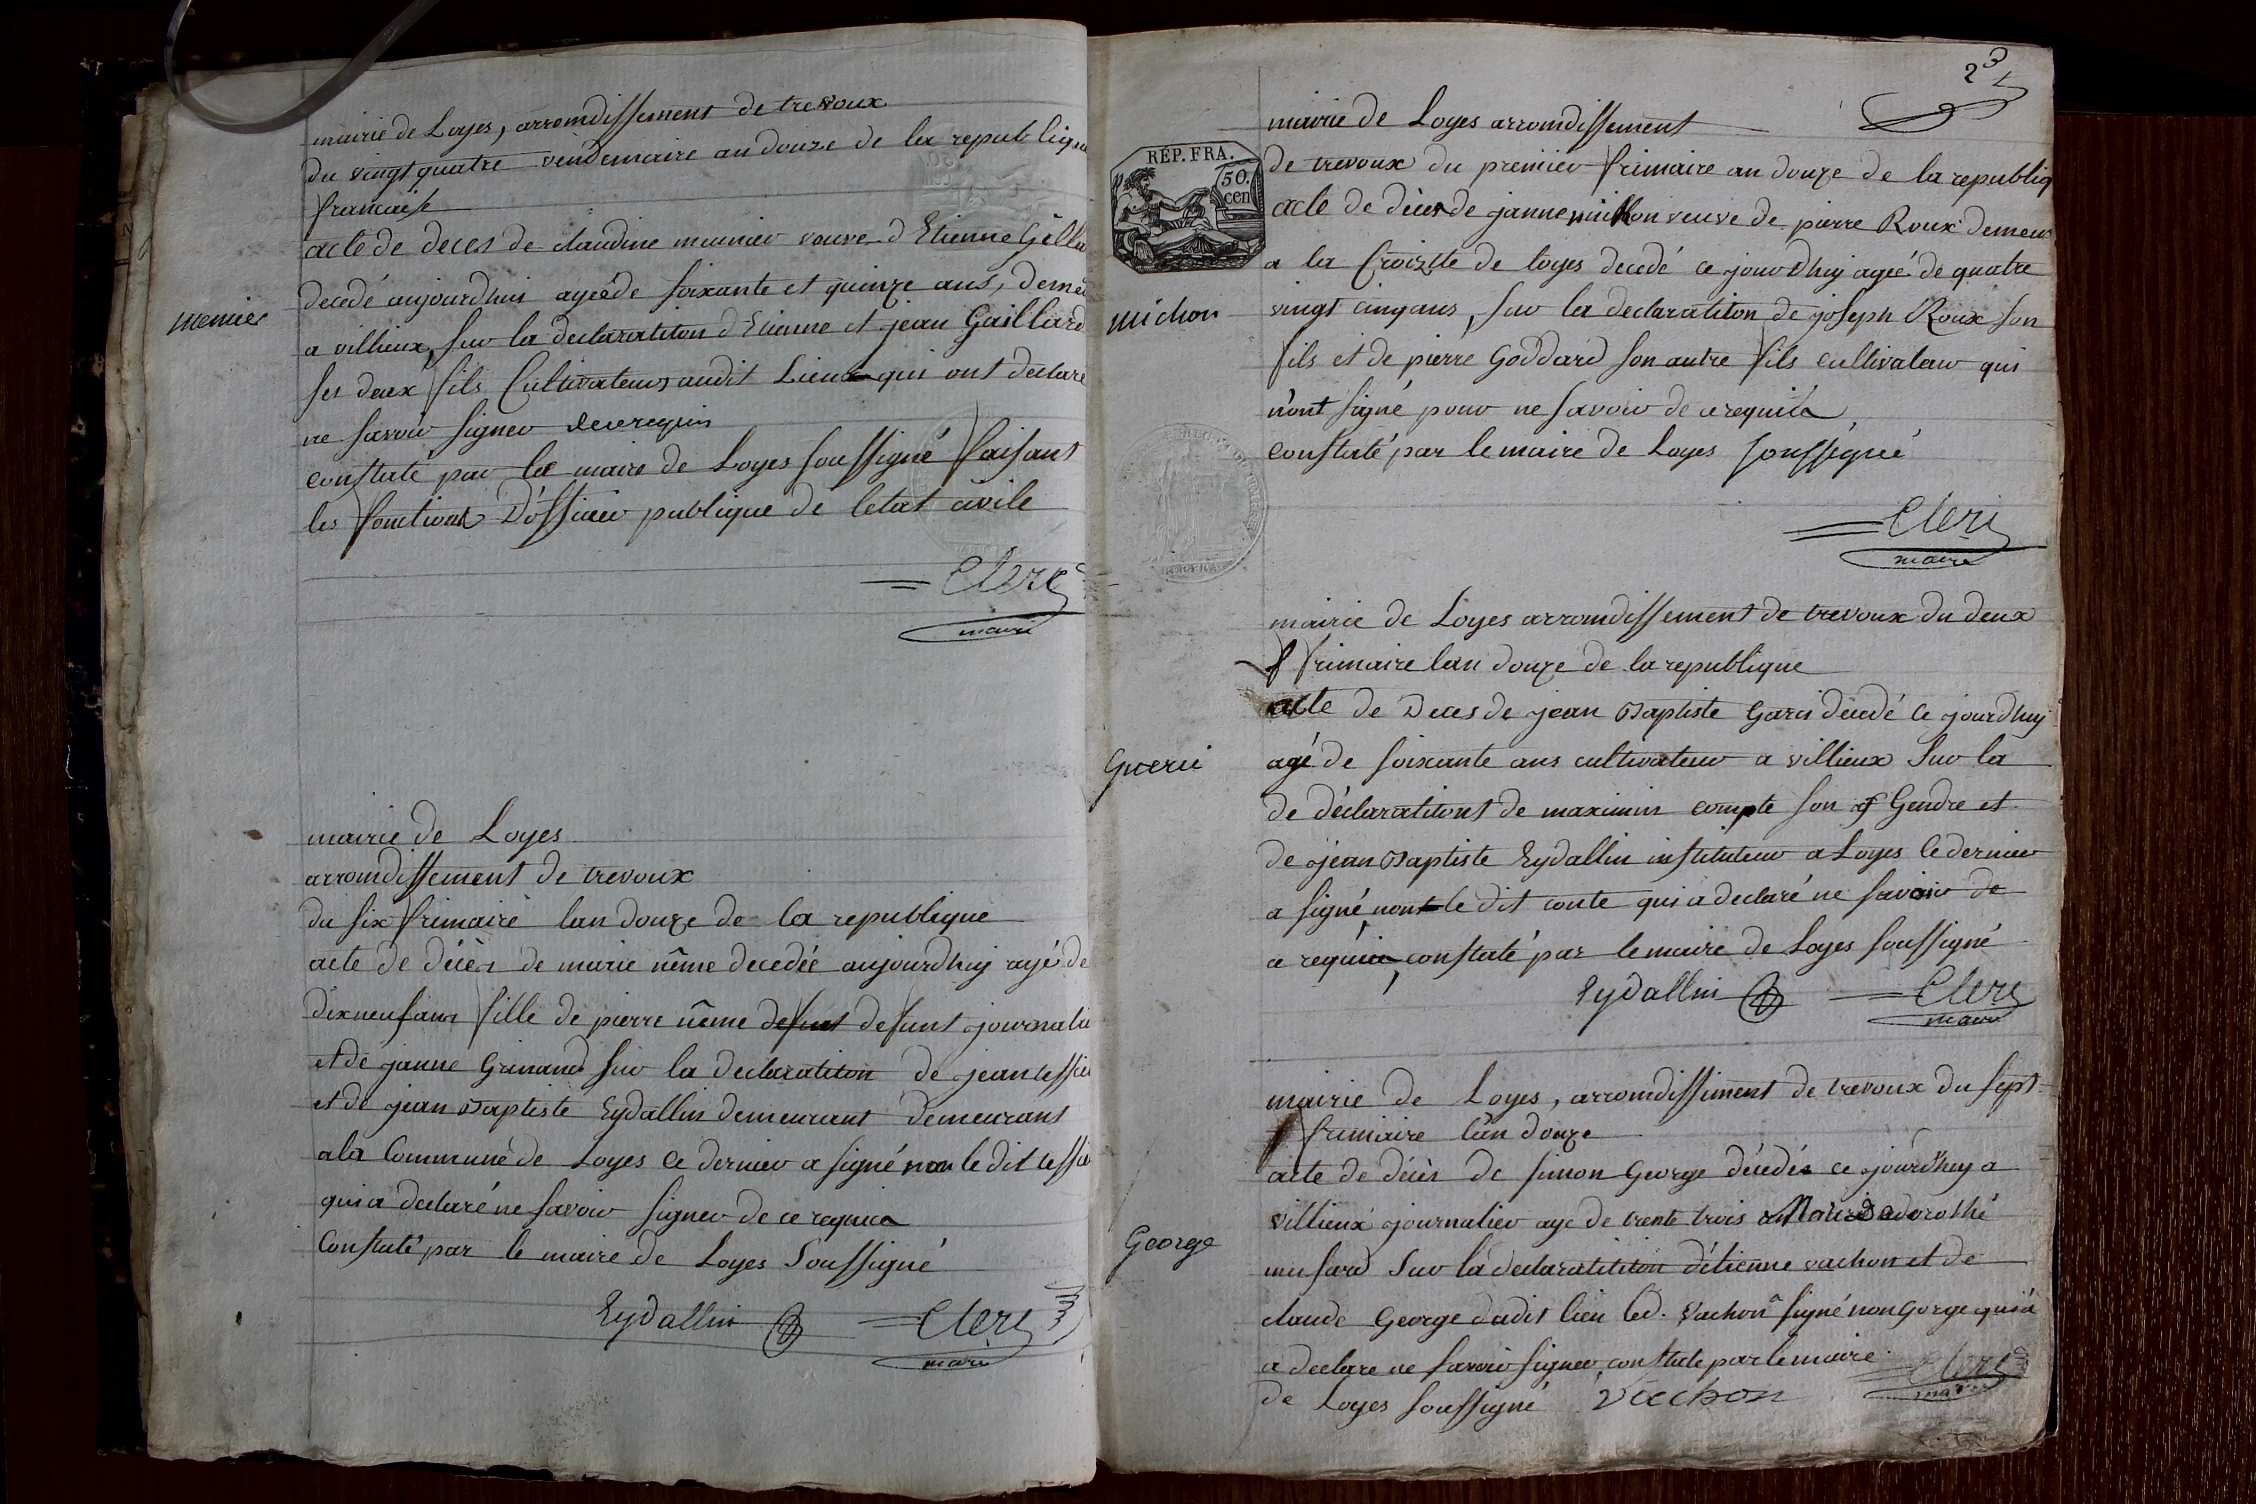 mairie de Loyes, arromdissement de trevoux
du vingt quatre vendemaire an douze de la republique
francaise
acte de deces de claudine meunier veuve d'Etienne
decedé aujourdhui ageéde soixante et quinze ans,
menier
a villieux, sur la declaratiton d'Etienne et jean Gaillard
ses deux fils Cultivateurs audit Lieu qui ont declare
ne savoir signer de ce requis
constaté par le maire de Loyes soussigné faisant
les fonctions D'officier publique de letat civile
Clerc
maire
mairie de Loyes
arromdissement de trevoux
du six frimaire lan douze de la republique
acte de décès de marie nême decedée aujourdhuy agé de
dixneuf ans fille de pierre nême defunt defunt
et de janne sur la declaratiton de jean
et de jean Baptiste Eydallin demeurant demeurant
a la Commune de Loyes ce dernier a signé non le dit
qui a declaré ne savoir signer de ce requis
Constaté par le maire de Loyes Soussigné
Eydallin Clerc
maire
23
mairie de Loyes arromdissement
RÉP. FRA.
50. cen
de trevoux du premier frimaire an douze de la republiq
acte de décès de janne michon veuve de pierre Roux
a la Croizette de loyes decedé ce jourdhuy ageé de quatre
michon
vingt cinq ans, sur la declaratiton de joseph Roux son
fils et de pierre Goddard son autre fils cultivateur qui
n'ont signé pour ne savoir de ce requis
constaté par le maire de Loyes soussigné
Clerc
maire
mairie de Loyes arromdissement de trevoux du deux
frimaire lan douze de la republique
acte de Deces de jean Baptiste décedé ce jourdhuy
Guerci
agé de soixante ans cultivateur a villieux Sur la
de déclaratitont de maximin compte son Gendre et
de jean Baptiste Eydallin instituteur a Loyes ce dernier
a signé, non le dit conte qui a declaré ne savoir de
ce requis, constaté par le maire de Loyes soussigné
Eydallin Clerc
maire
mairie de Loyes, arromdissiment de trevoux du sept
frimaire lan douze
acte de décès de simon George décédé ce jourdhuy a
villieux journalier age de trente trois Marié a dorothé
George
musard Sur la declaratititon d'étienne vachon et de
claude George dudit lieu led. Vachon a signé non Gorge qui a
a declare ne savoir signer, constate par le maire
de Loyes soussigné Vachon Clerc
maire